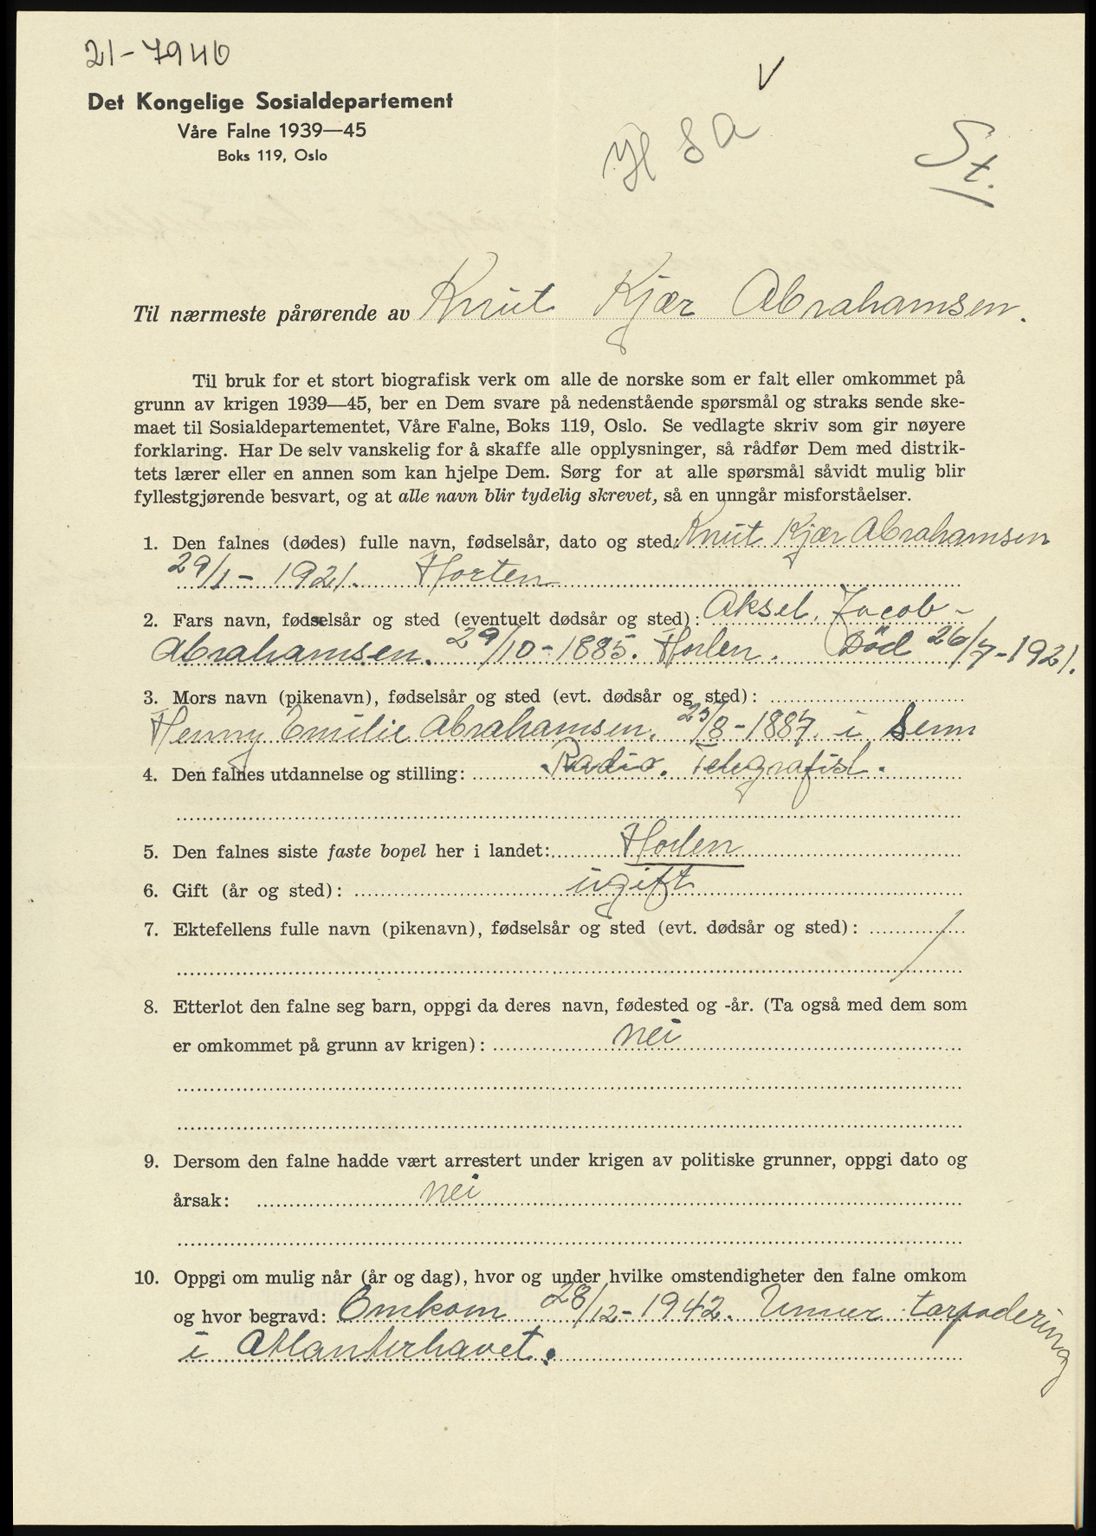 21-7940
Det Kongelige Sosialdepartement
Våre Falne 1939—45
Boks 119, Oslo
St.
Til nærmeste pårørende av Knut Kjær Abrahamsen.
Til bruk for et stort biografisk verk om alle de norske som er falt eller omkommet på
grunn av krigen 1939—45, ber en Dem svare på nedenstående spørsmål og straks sende ske-
maet til Sosialdepartementet, Våre Falne, Boks 119, Oslo. Se vedlagte skriv som gir nøyere
forklaring. Har De selv vanskelig for å skaffe alle opplysninger, så rådfør Dem med distrik-
tets lærer eller en annen som kan hjelpe Dem. Sørg for at alle spørsmål såvidt mulig blir
fyllestgjørende besvart, og at alle navn blir tydelig skrevet, så en unngår misforståelser.
1. Den falnes (dødes) fulle navn, fødselsår, dato og sted: Knut Kjær Abrahamsen
29/1- 1921. Horten
2. Fars navn, fødselsår og sted (eventuelt dødsår og sted): Aksel. Jacob-
Abrahamsen. 29/10-1885. Horten. Død 26/7-1921.
3. Mors navn (pikenavn), fødselsår og sted (evt. dødsår og sted):
Henny Emilie Abrahamsen. 25/8-1887. i Sem
4. Den falnes utdannelse og stilling: Radio. Telegrafist.
5. Den falnes siste faste bopel her i landet: Horten
6. Gift (år og sted): ugift
7. Ektefellens fulle navn (pikenavn), fødselsår og sted (evt. dødsår og sted): /
8. Etterlot den falne seg barn, oppgi da deres navn, fødested og -år. (Ta også med dem som
er omkommet på grunn av krigen): nei
9. Dersom den falne hadde vært arrestert under krigen av politiske grunner, oppgi dato og
årsak: nei
10. Oppgi om mulig når (år og dag), hvor og under hvilke omstendigheter den falne omkom
og hvor begravd: Omkom 28/12-1942. Unner torpedering
i Atlanterhavet.